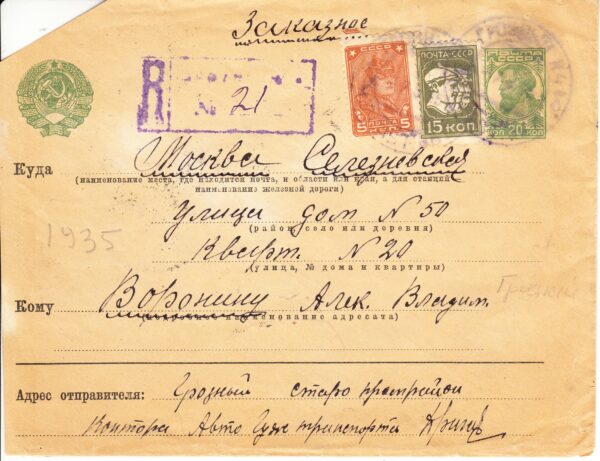 Заказное
ПОЧТА СССР
СССР
R
№ 21
5 ПОЧТА 5
КОП КОП
15 КОП
20
КОП
Куда Москва Селезневская
(наименование места, где находится почта, и области или края, а для станций
наименование железной дороги)
улица дом N 50
(район, село или деревня)
Кварт. N 20
(улица, № дома и квартиры)
1935
Кому Воронину Алек. Владим.
(наименование адресата)
Адрес отправителя: Грозный старо промрайон
Контора Авто Гуж транспорта